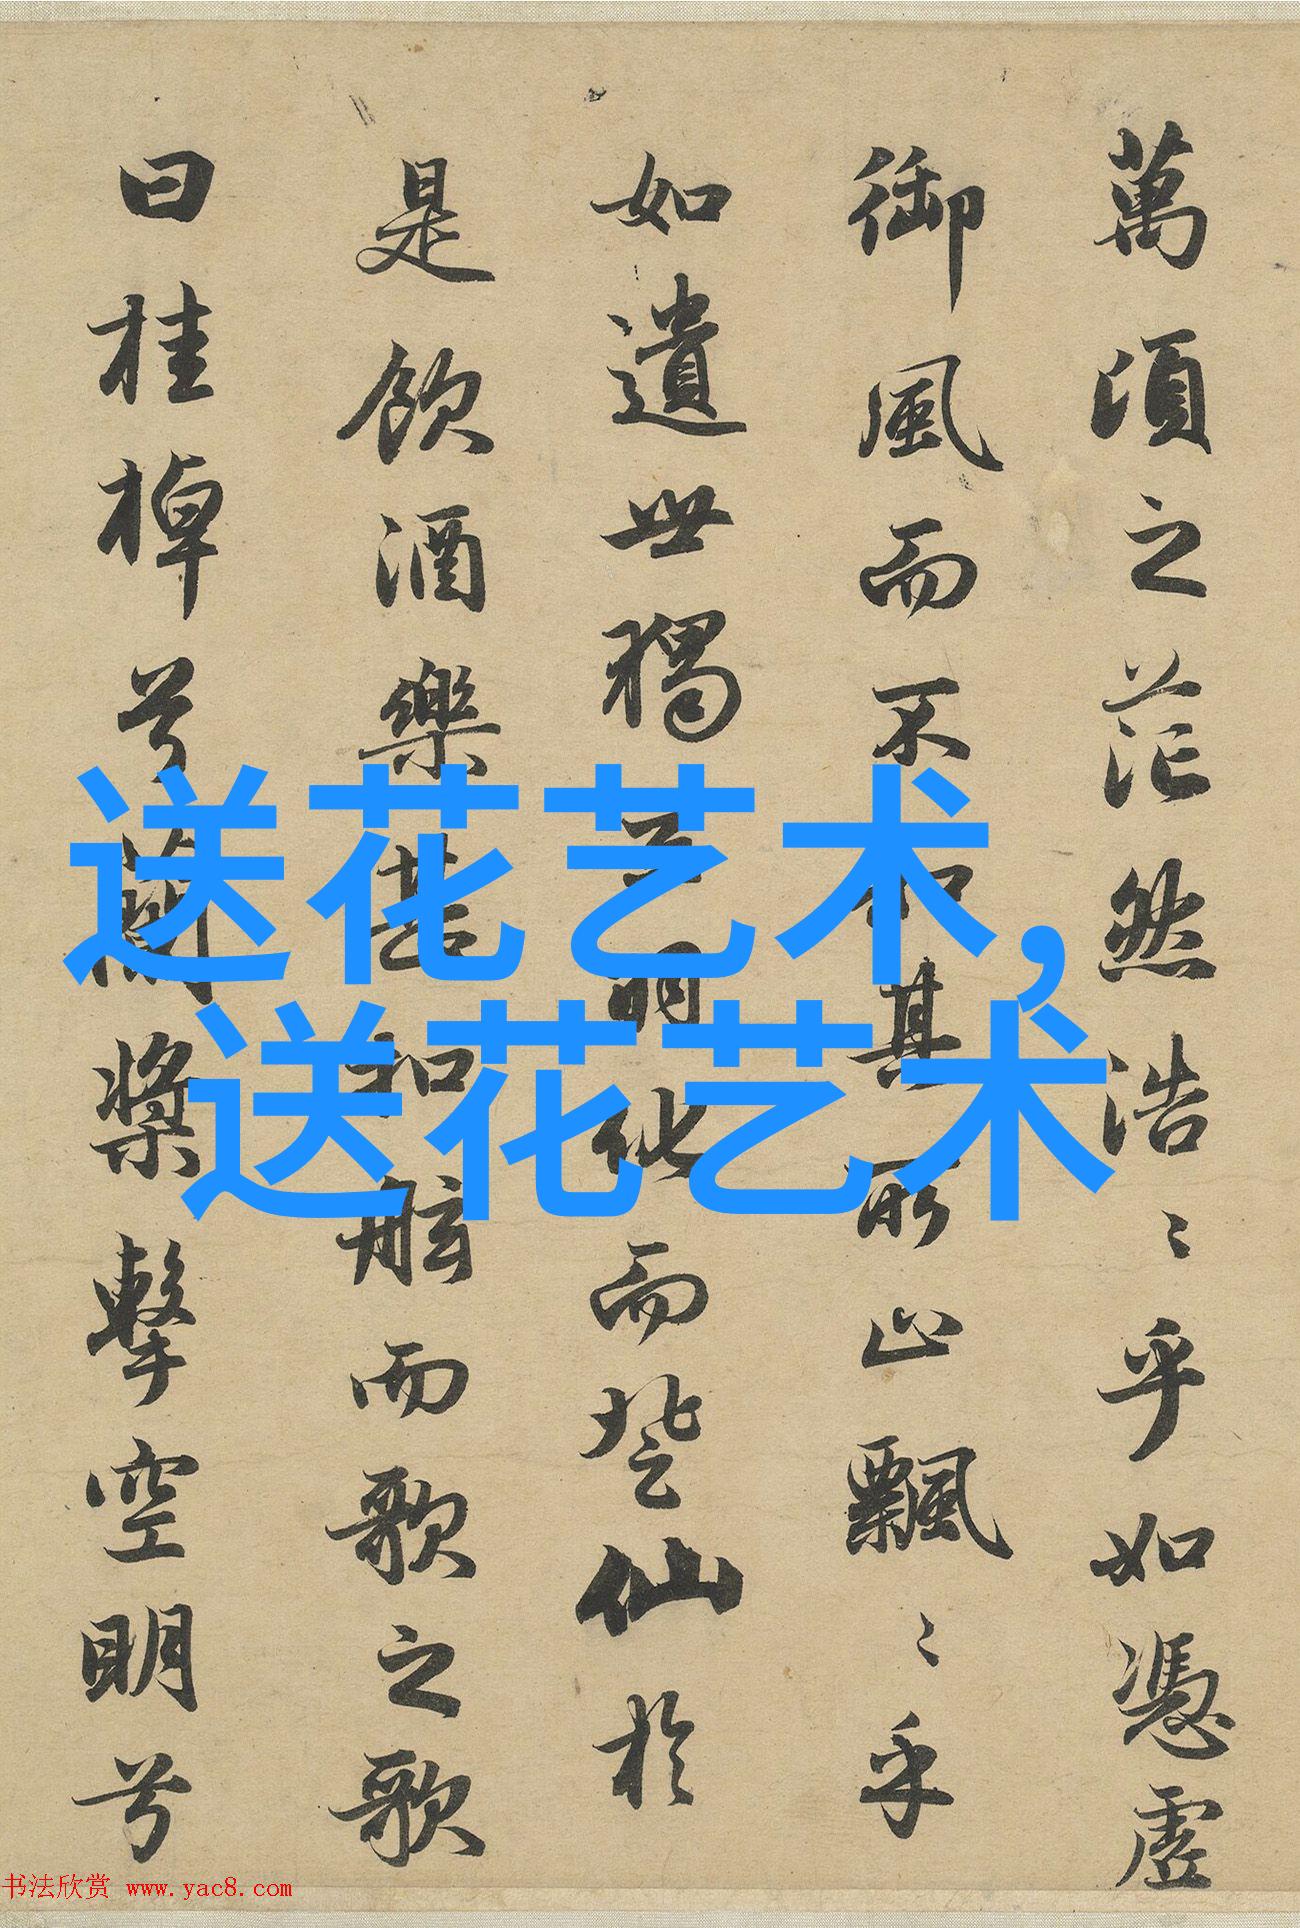 萬頃之茫然浩〻乎如憑虛
御風而不知其所止飄〻乎
如遺世獨立羽化而登仙於
是飲酒樂甚扣舷而歌之歌
曰桂棹兮蘭槳擊空明兮
送花艺术,
送花艺术
书法欣赏 www.yac8.com